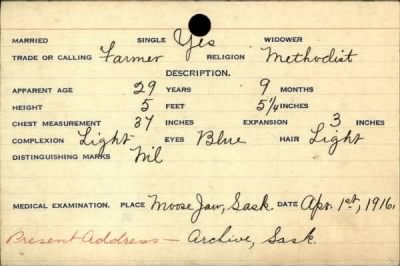 MARRIED SINGLE Yes WIDOWER
TRADE OR CALLING Farmer RELIGION Methodist
DESCRIPTION.
APPARENT AGE 29 YEARS 9 MONTHS
HEIGHT 5 FEET 5¼ INCHES
CHEST MEASUREMENT 37 INCHES EXPANSION 3 INCHES
COMPLEXION Light EYES Blue HAIR Light
DISTINGUISHING MARKS Nil
MEDICAL EXAMINATION. PLACE Moose Jaw, Sask. DATE Apr. 1st, 1916.
Present Address - Archive, Sask.